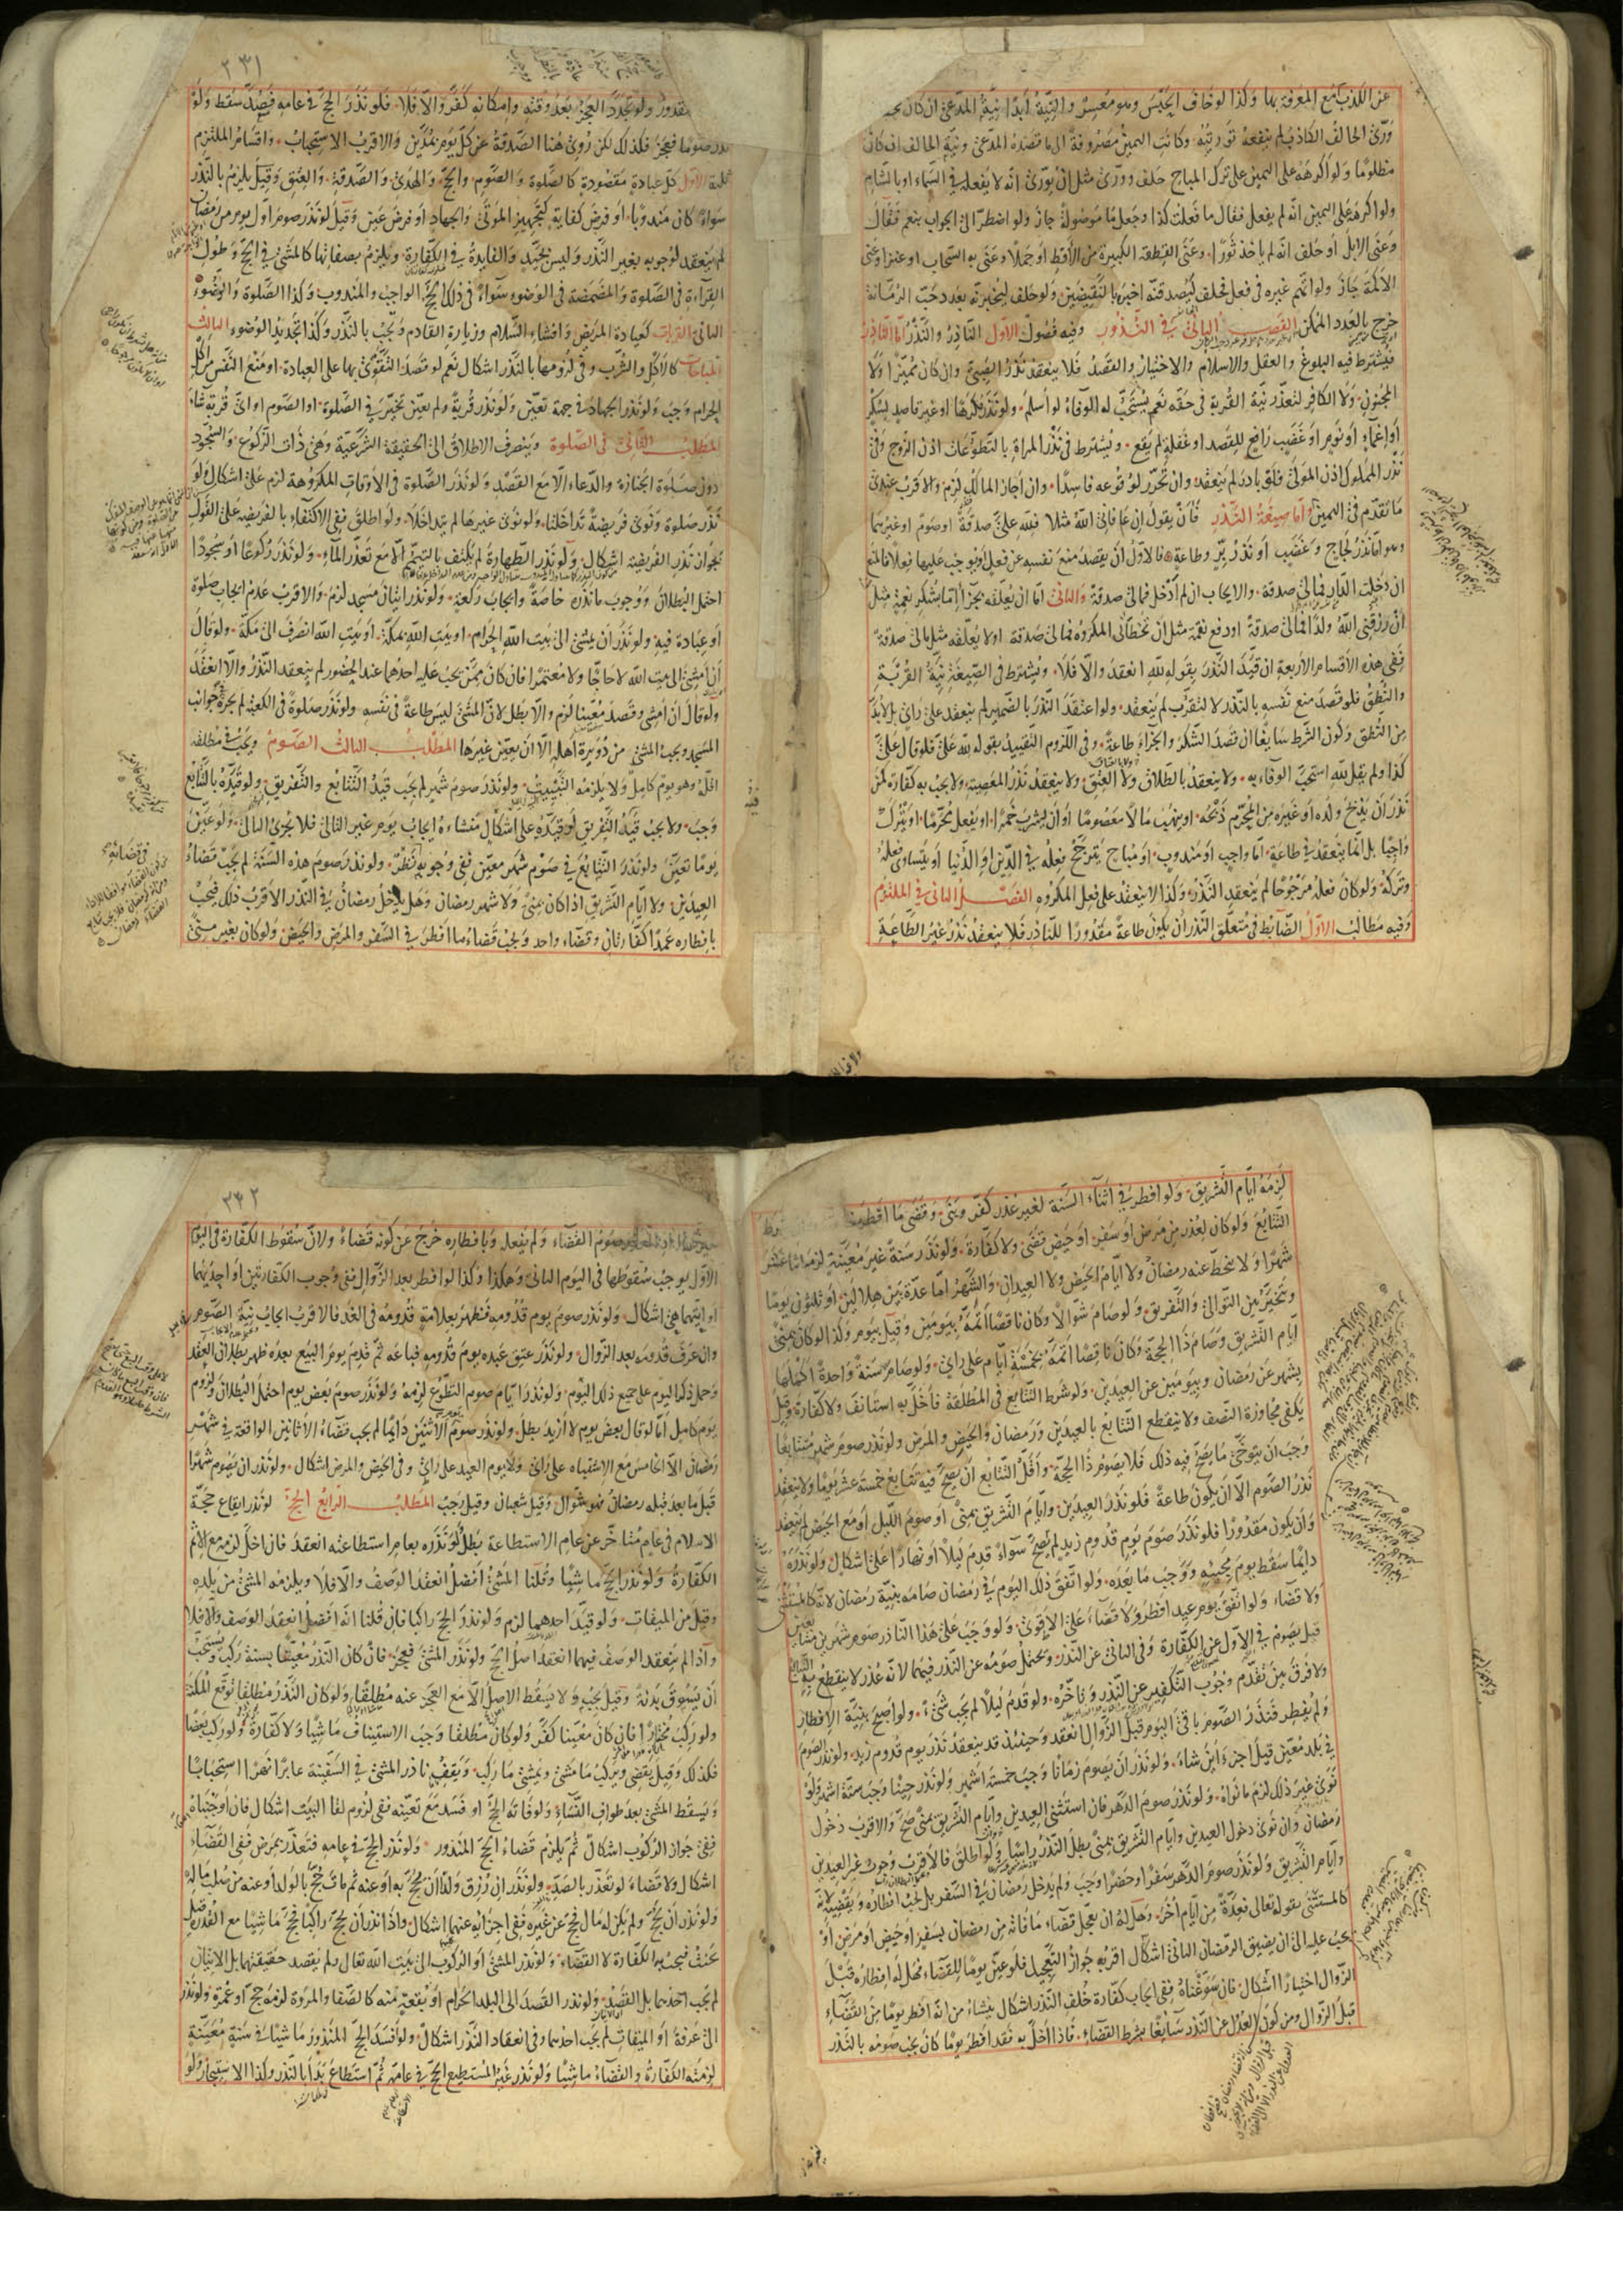 عن الكذب مع المعرفة بها وكذا لو خاف الحبس وهو معسر والنية ابدا نية المدعي ان كان
ورّى الحالف الكاذب لم ينفعه توريته وكانت اليمين مصروفة الى ما قصده المدعي ونية الحالف ان كان
مظلوما ولو اكرهه على اليمين على ترك المباح حلف وورّى مثل ان يورّى انه لا يفعله في السماء او بالشام
ولو اكره على اليمين انه لم يفعل فقال ما فعلت كذا وجعل ما موصولة جاز ولو اضطر الى الجواب بنعم فقال
وعنى الابل او حلف انه لم ياخذ ثورا وعنى القطعة الكبيرة من الأقط او جملا وعنى به السحاب او عنزا وعنى
الاكمة جاز ولو اتهم غيره في فعل فحلف ليصدقنه اخبر بالنقيضين ولو حلف ليخبرنه بعدد حب الرمانة
خرج بالعدد الممكن الفصل الثاني في النذور وفيه فصول الاول الناذر والنذر اما الناذر
فيشترط فيه البلوغ والعقل والاسلام والاختيار والقصد فلا ينعقد نذر الصبي وان كان مميزا ولا
المجنون ولا الكافر لتعذر نية القربة في حقه نعم يستحب له الوفاء لو اسلم ولو نذر مكرها او غير قاصد بسكر
او اغماء او نوم او غضب رافع للقصد او غفلة لم يقع ويشترط في نذر المراة بالتطوعات اذن الزوج وفي
نذر المملوك اذن المولى فلو بادر لم ينعقد وان تحرر لوقوعه فاسدا وان اجاز المالك لزم والاقرب عندي
ما تقدم في اليمين واما صيغة النذر فأن يقول ان عافاني الله مثلا فلله علي صدقة او صوم او غيرهما
وهو اما نذر لجاج وغضب او نذر بر وطاعة فالاول ان يقصد منع نفسه عن فعل او يوجب عليها فعلا فالمنع
ان دخلت الدار فمالي صدقة والايجاب ان لم ادخل فمالي صدقة والثاني اما ان يعلقه بجزاء اما شكر نعمة مثل
ان رزقني الله ولدا فمالي صدقة او دفع نقمة مثل ان تخطاني المكروه فمالي صدقة او لا يعلقه مثل مالي صدقة
ففي هذه الاقسام الاربعة ان قيد النذر بقوله لله انعقد والا فلا ويشترط في الصيغة نية القربة
والنطق فلو قصد منع نفسه بالنذر لا التقرب لم ينعقد ولو اعتقد النذر بالضمير لم ينعقد على راي بل لا بد
من النطق وكون الشرط سايغا ان قصد الشكر والجزاء طاعة وفي اللزوم التقييد بقوله لله علي فلو قال علي
كذا ولم يقل لله استحب الوفاء به ولا ينعقد بالطلاق ولا العتق ولا ينعقد نذر المعصية ولا يجب به كفارة كمن
نذر ان يذبح ولده او غيره من المحرم ذبحه او ينهب مالا معصوما او ان يشرب خمرا او يفعل محرما او يترك
واجبا بل انما ينعقد في طاعة اما واجب او مندوب او مباح يترجح فعله في الدين او الدنيا او يتساوى فعله
وتركه ولو كان فعله مرجوحا لم ينعقد النذر وكذا لا ينعقد على فعل المكروه الفصل الثاني في الملتزم
وفيه مطالب الاول الضابط في متعلق النذر ان يكون طاعة مقدورا للناذر فلا ينعقد نذر غير الطاعة
٢٣١
مقدور ولو تجدد العجز بعد وقته وامكانه كفّر والا فلا فلو نذر الحج في عامه فصد سقط ولو
نذر صوما فعجز فكذلك لكن روي هنا الصدقة عن كل يوم بمدين والاقرب الاستحباب واقسام الملتزم
ثلثة الاول كل عبادة مقصودة كالصلوة والصوم والحج والهدي والصدقة والعتق وقيل يلزم بالنذر
سواء كان مندوبا او فرض كفاية كتجهيز الموتى والجهاد او فرض عين وقيل لو نذر صوم اول يوم من رمضان
لم ينعقد لوجوبه بغير النذر وليس بجيد والفايدة في الكفارة ويلزم بصفاتها كالمشي في الحج وطول
القراءة في الصلوة والمضمضة في الوضوء سواء في ذلك الحج الواجب والمندوب وكذا الصلوة والوضوء
الثاني القربات كعيادة المريض وافشاء السلام وزيارة القادم ويجب بالنذر وكذا تجديد الوضوء الثالث
المباحات كالاكل والشرب وفي لزومها بالنذر اشكال نعم لو قصد التقوي بها على العبادة او منع النفس من اكل
الحرام وجب ولو نذر الجهاد في جهة تعين ولو نذر قربة ولم يعين تخير في الصلوة او الصوم او اي قربة شاء
المطلب الثاني في الصلوة وينصرف الاطلاق الى الحقيقة الشرعية وهي ذات الركوع والسجود
دون صلوة الجنازة والدعاء الا مع القصد ولو نذر الصلوة في الاوقات المكروهة لزم على اشكال ولو
نذر صلوة ونوى فريضة تداخلتا ولو نوى غيرها لم يتداخلا ولو اطلق ففي الاكتفاء بالفريضة على القول
بجواز نذر الفريضة اشكال ولو نذر الطهارة لم يكتف بالتيمم الا مع تعذر الماء ولو نذر ركوعا او سجودا
احتمل البطلان ووجوب ما نذره خاصة وايجاب ركعة ولو نذر اتيان مسجد لزم والاقرب عدم ايجاب صلوة
او عبادة فيه ولو نذر ان يمشي الى بيت الله الحرام او بيت الله بمكة او بيت الله انصرف الى مكة ولو قال
ان امشي الى بيت الله لا حاجا ولا معتمرا فان كان ممن يجب عليه احدهما عند الحضور لم ينعقد النذر والا انعقد
ولو قال ان امشي وقصد معينا لزم والا بطل لان المشي ليس طاعة في نفسه ولو نذر صلوة في الكعبة لم يجزه جوانب
المسجد ويجب المشي من دويرة اهله الا ان يعين غيرها المطلب الثالث الصوم ويجب في مطلقه
اقله وهو يوم كامل ولا يلزمه التبييت ولو نذر صوم شهر لم يجب قيد التتابع والتفريق ولو قيده بالتتابع
وجب ولا يجب قيد التفريق لو قيده على اشكال منشاؤه ايجاب يوم غير الثاني فلا يجزي الثاني ولو عين
يوما تعين ولو نذر التتابع في صوم شهر معين ففي وجوبه نظر ولو نذر صوم هذه السنة لم يجب قضاء
العيدين ولا ايام التشريق اذا كان بمنى ولا شهر رمضان وهل يدخل رمضان في النذر الاقرب ذلك فيجب
بافطاره عمدا كفارتان وقضاء واحد ويجب قضاء ما افطر في السفر والمرض والحيض ولو كان بغير منى
لزمه ايام التشريق ولو افطر في اثناء السنة لغير عذر كفر وبنى وقضى ما افطر
التتابع ولو كان لعذر من مرض او سفر او حيض قضى ولا كفارة ولو نذر سنة غير معينة لزمه اثنا عشر
شهرا ولا ينحط عنه رمضان ولا ايام الحيض ولا العيدان والشهر اما عدة بين هلالين او ثلثون يوما
ويتخير بين التوالي والتفريق ولو صام شوالا وكان ناقصا اتمه بيومين وقيل بيوم وكذا لو كان بمنى
ايام التشريق وصام ذا الحجة وكان ناقصا اتمه بخمسة ايام على راي ولو صام سنة واحدة اكملها
بشهر عن رمضان وبيومين عن العيدين ولو شرط التتابع في المطلقة فأخل به استانف ولا كفارة وقيل
يكفي مجاوزة النصف ولا ينقطع التتابع بالعيدين ورمضان والحيض والمرض ولو نذر صوم شهر متتابعا
وجب ان يتوخى ما يصح فيه ذلك فلا يصوم ذا الحجة واقل التتابع ان يصح فيه تتابع خمسة عشر يوما ولا ينعقد
نذر الصوم الا ان يكون طاعة فلو نذر العيدين وايام التشريق بمنى او صوم الليل او مع الحيض لم ينعقد
وان يكون مقدورا فلو نذر صوم يوم قدوم زيد لم يصح سواء قدم ليلا او نهارا على اشكال ولو نذره
دايما سقط يوم مجيئه ووجب ما بعده ولو اتفق ذلك اليوم في رمضان صامه بنية رمضان لانه كالمستثنى
ولا قضاء ولو اتفق يوم عيد افطر ولا قضاء على الاقوى ولو وجب على هذا الناذر صوم شهرين متتابعين
قيل يصوم في الاول عن الكفارة وفي الثاني عن النذر ويحتمل صومه عن النذر فيهما لانه عذر لا ينقطع به التتابع
ولا فرق بين تقدم وجوب التكفير عن النذر وتاخره ولو قدم ليلا لم يجب شيء ولو اصبح بنية الافطار
ولم يفطر فنذر الصوم باقي اليوم قبل الزوال انعقد وحينئذ قد ينعقد نذر يوم قدوم زيد ولو نذر الصوم
في بلد معين قيل اجزء اين شاء ولو نذر ان يصوم زمانا وجب خمسة اشهر ولو نذر حينا وجب ستة اشهر ولو
نوى غير ذلك لزم ما نواه ولو نذر صوم الدهر فان استثنى العيدين وايام التشريق بمنى صح والاقرب دخول
رمضان وان نوى دخول العيدين وايام التشريق بمنى بطل النذر راسا ولو اطلق فالاقرب وجوب غير العيدين
وايام التشريق ولو نذر صوم الدهر سفرا وحضرا وجب ولم يدخل رمضان في السفر بل يجب افطاره ويقضيه لانه
كالمستثنى بقوله تعالى فعدة من ايام اخر وهل له ان يعجل قضاء ما فاته من رمضان بسفر او حيض او مرض او
يجب عليه الى ان يضيق الرمضان الثاني اشكال اقربه جواز التعجيل فلو عين يوما للقضاء فهل له افطاره قبل
الزوال اختيارا اشكال فان سوغناه ففي ايجاب كفارة خلف النذر اشكال ينشأ من انه افطر يوما من القضاء
قبل الزوال ومن كون العدل عن النذر سايغا بشرط القضاء فاذا اخل به فقد افطر يوما كان يجب صومه بالنذر
٢٣٢
صوم القضاء ولم يفعل وبافطاره خرج عن كونه قضاء ولان سقوط الكفارة في اليوم
الاول يوجب سقوطها في اليوم الثاني وهكذا وكذا لو افطر بعد الزوال ففي وجوب الكفارتين او احديهما
او ايتهما هي اشكال ولو نذر صوم يوم قدومه فظهر بعلامة قدومه في الغد فالاقرب ايجاب نية الصوم
وان عرف قدومه بعد الزوال ولو نذر عتق عبده يوم قدومه فباعه ثم قدم يوم البيع بعده ظهر بطلان العقد
وحمل ذكر اليوم على جميع ذلك اليوم ولو نذر اتمام صوم التطوع لزمه ولو نذر صوم بعض يوم احتمل البطلان ولزوم
يوم كامل اما لو قال بعض يوم لا ازيد بطل ولو نذر صوم الاثنين دايما لم يجب قضاء الاثانين الواقعة في شهر
رمضان الا الخامس مع الاشتباه على راي ولا يوم العيد على راي وفي الحيض والمرض اشكال ولو نذر ان يصوم شهرا
قبل ما بعد قبله رمضان فهو شوال وقيل شعبان وقيل رجب المطلب الرابع الحج لو نذر ايقاع حجة
الاسلام في عام متاخر عن عام الاستطاعة بطل ولو نذره بعام استطاعته انعقد فان اخل لزمه مع الاثم
الكفارة ولو نذر الحج ماشيا وقلنا المشي افضل انعقد الوصف والا فلا ويلزمه المشي من بلده
وقيل من الميقات ولو قيد احدهما لزم ولو نذر الحج راكبا فان قلنا انه افضل انعقد الوصف والا فلا
واذا لم ينعقد الوصف فيهما انعقد اصل الحج ولو نذر المشي فعجز فان كان النذر معينا بسنة ركب ويستحب
ان يسوق بدنة وقيل يجب ولا يسقط الاصل الا مع العجز عنه مطلقا ولو كان النذر مطلقا توقع المكنة
ولو ركب مختارا فان كان معينا كفر ولو كان مطلقا وجب الاستيناف ماشيا ولا كفارة ولو ركب بعضا
فكذلك وقيل يقضي ويركب ما مشى ويمشي ما ركب ويقف ناذر المشي في السفينة عابرا نهرا استحبابا
ويسقط المشي بعد طواف النساء ولو فاته الحج او فسد مع تعينه ففي لزوم لقاء البيت اشكال فان اوجبناه
ففي جواز الركوب اشكال ثم يلزم قضاء الحج المنذور ولو نذر الحج في عامه فتعذر بمرض ففي القضاء
اشكال ولا قضاء لو تعذر بالصد ولو نذر ان رزق ولدا ان يحج به او عنه ثم مات حج بالولد او عنه من صلب ماله
ولو نذر ان يحج ولم يكن له مال فحج عن غيره ففي اجزائه عنهما اشكال واذا نذر ان يحج راكبا فحج ماشيا مع القدرة قيل
يحنث فيجب به الكفارة لا القضاء ولو نذر المشي او الركوب الى بيت الله تعالى ولم يقصد حقيقتهما بل الاتيان
لم يجب احدهما بل القصد ولو نذر القصد الى البلد الحرام او بقعة منه كالصفا والمروة لزمه حج او عمرة ولو نذر
الى عرفة او الميقات لم يجب احدهما وفي انعقاد النذر اشكال ولو افسد الحج المنذور ماشيا في سنة معينة
لزمته الكفارة والقضاء ماشيا ولو نذر غير المستطيع الحج في عامه ثم استطاع بدأ بالنذر وكذا الاستيجار ولو